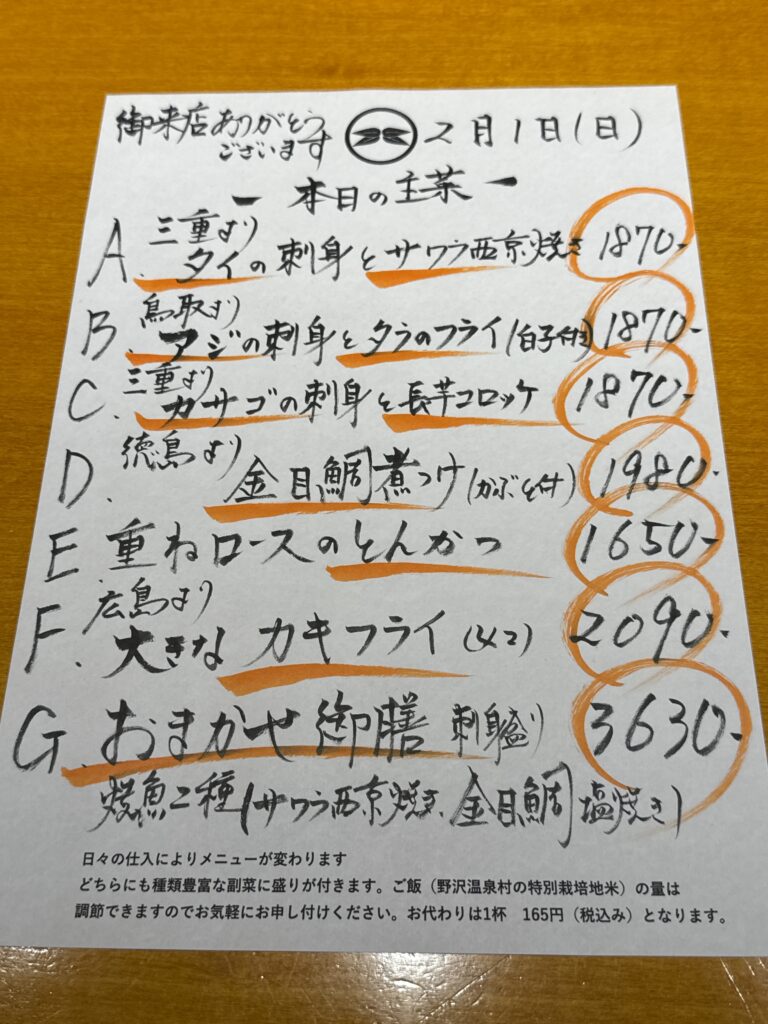 御来店ありがとう
ございます
2月1日(日)
ー本日の主菜ー
A. 三重より
タイの刺身とサワラ西京焼き 1870-
B. 鳥取より
アジの刺身とタラのフライ(白子付き) 1870-
C. 三重より
カサゴの刺身と長芋コロッケ 1870-
D. 徳島より
金目鯛煮つけ(かぶと付) 1980-
E 重ねロースのとんかつ 1650-
F. 広島より
大きなカキフライ(4コ) 2090-
G. おまかせ御膳 刺身盛り 3630-
焼魚二種(サワラ西京焼き、金目鯛塩焼き)
日々の仕入によりメニューが変わります
どちらにも種類豊富な副菜に盛りが付きます。ご飯（野沢温泉村の特別栽培地米）の量は
調節できますのでお気軽にお申し付けください。お代わりは1杯　165円（税込み）となります。